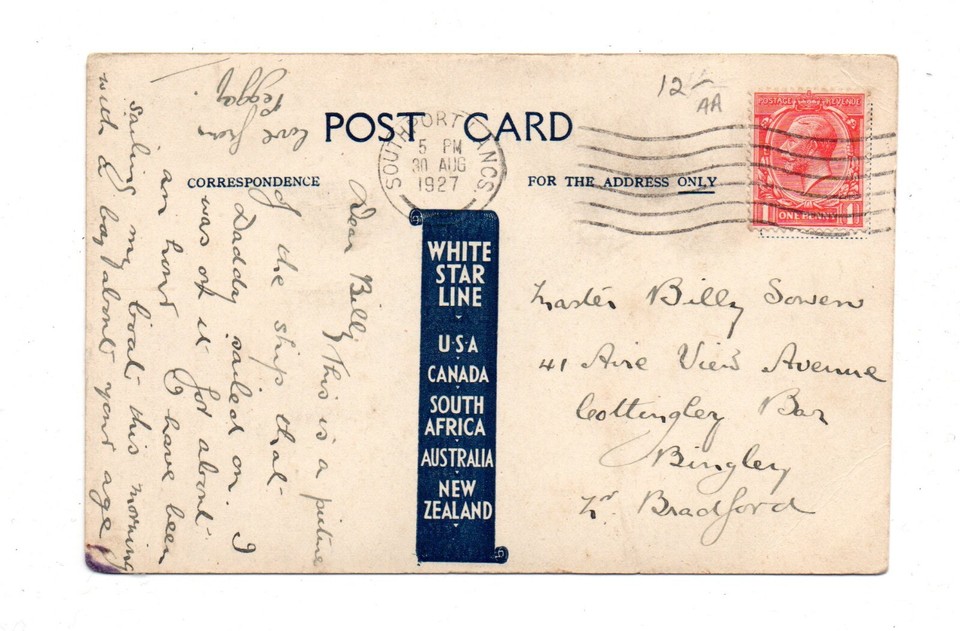 12/-
AA
POST CARD
CORRESPONDENCE
FOR THE ADDRESS ONLY
SOUTHPORT LANCS.
5 PM
30 AUG
1927
POSTAGE REVENUE
1 ONE PENNY 1
WHITE
STAR
LINE
U·S·A
CANADA
SOUTH
AFRICA
AUSTRALIA
NEW
ZEALAND
Dear Billy This is a picture
of the ship that
Daddy sailed on. I
was on it for about
an hour & have been
sailing my boat this morning
with a boy about your age
love from
Peggy.
Master Billy Sowen
41 Aire View Avenue
Cottingley Bar
Bingley
Nr Bradford